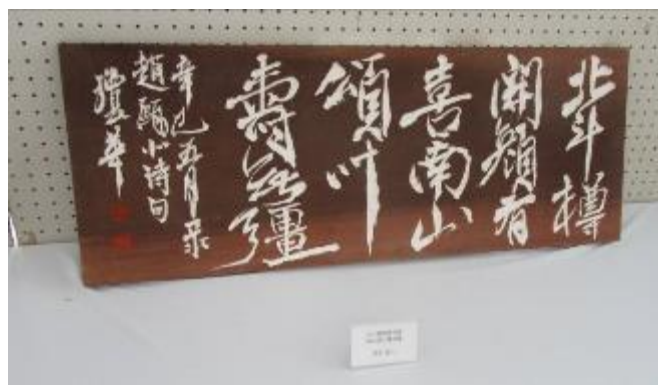 北斗樽
開顏有
喜南山
頌叶
壽無疆
辛巳五月录
趙小詩句
華